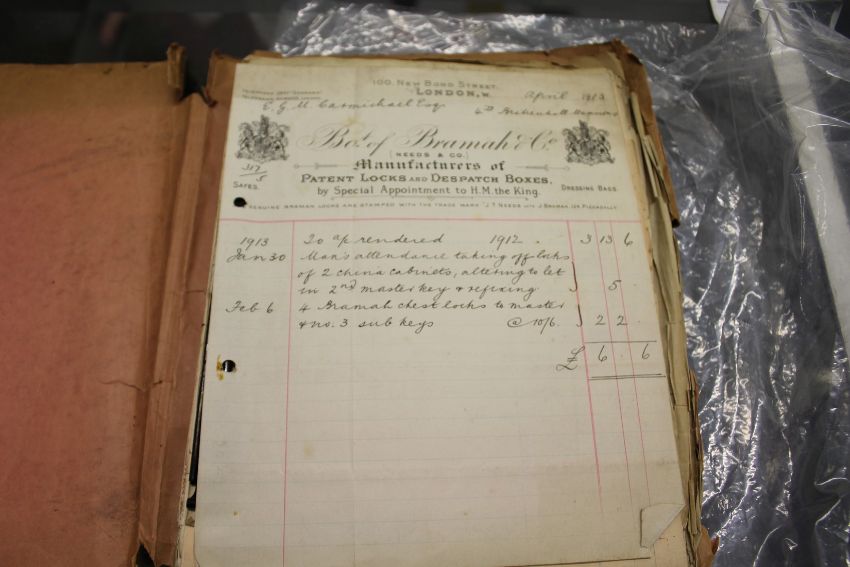 100, New Bond Street,
London, W. April 1913
E. G. M. Carmichael Esq.
Bot. of Bramah & Co.
(NEEDS & CO.)
Manufacturers of
PATENT LOCKS AND DESPATCH BOXES,
by Special Appointment to H.M. the King.
317
5
SAFES. DRESSING BAGS
GENUINE BRAMAH LOCKS ARE STAMPED WITH THE TRADE MARK "J.T. NEEDS J. BRAMAH, 124, PICCADILLY
1913 To a/c rendered 1912 . 3 13 6
Jan 30 Man's attendance taking off locks
of 2 china cabinets, altering to let
in 2nd master key & refixing 5
Feb 6 4 Bramah chest locks to master
& no. 3 sub keys @ 10/6. 2 2
£ 6 . 6